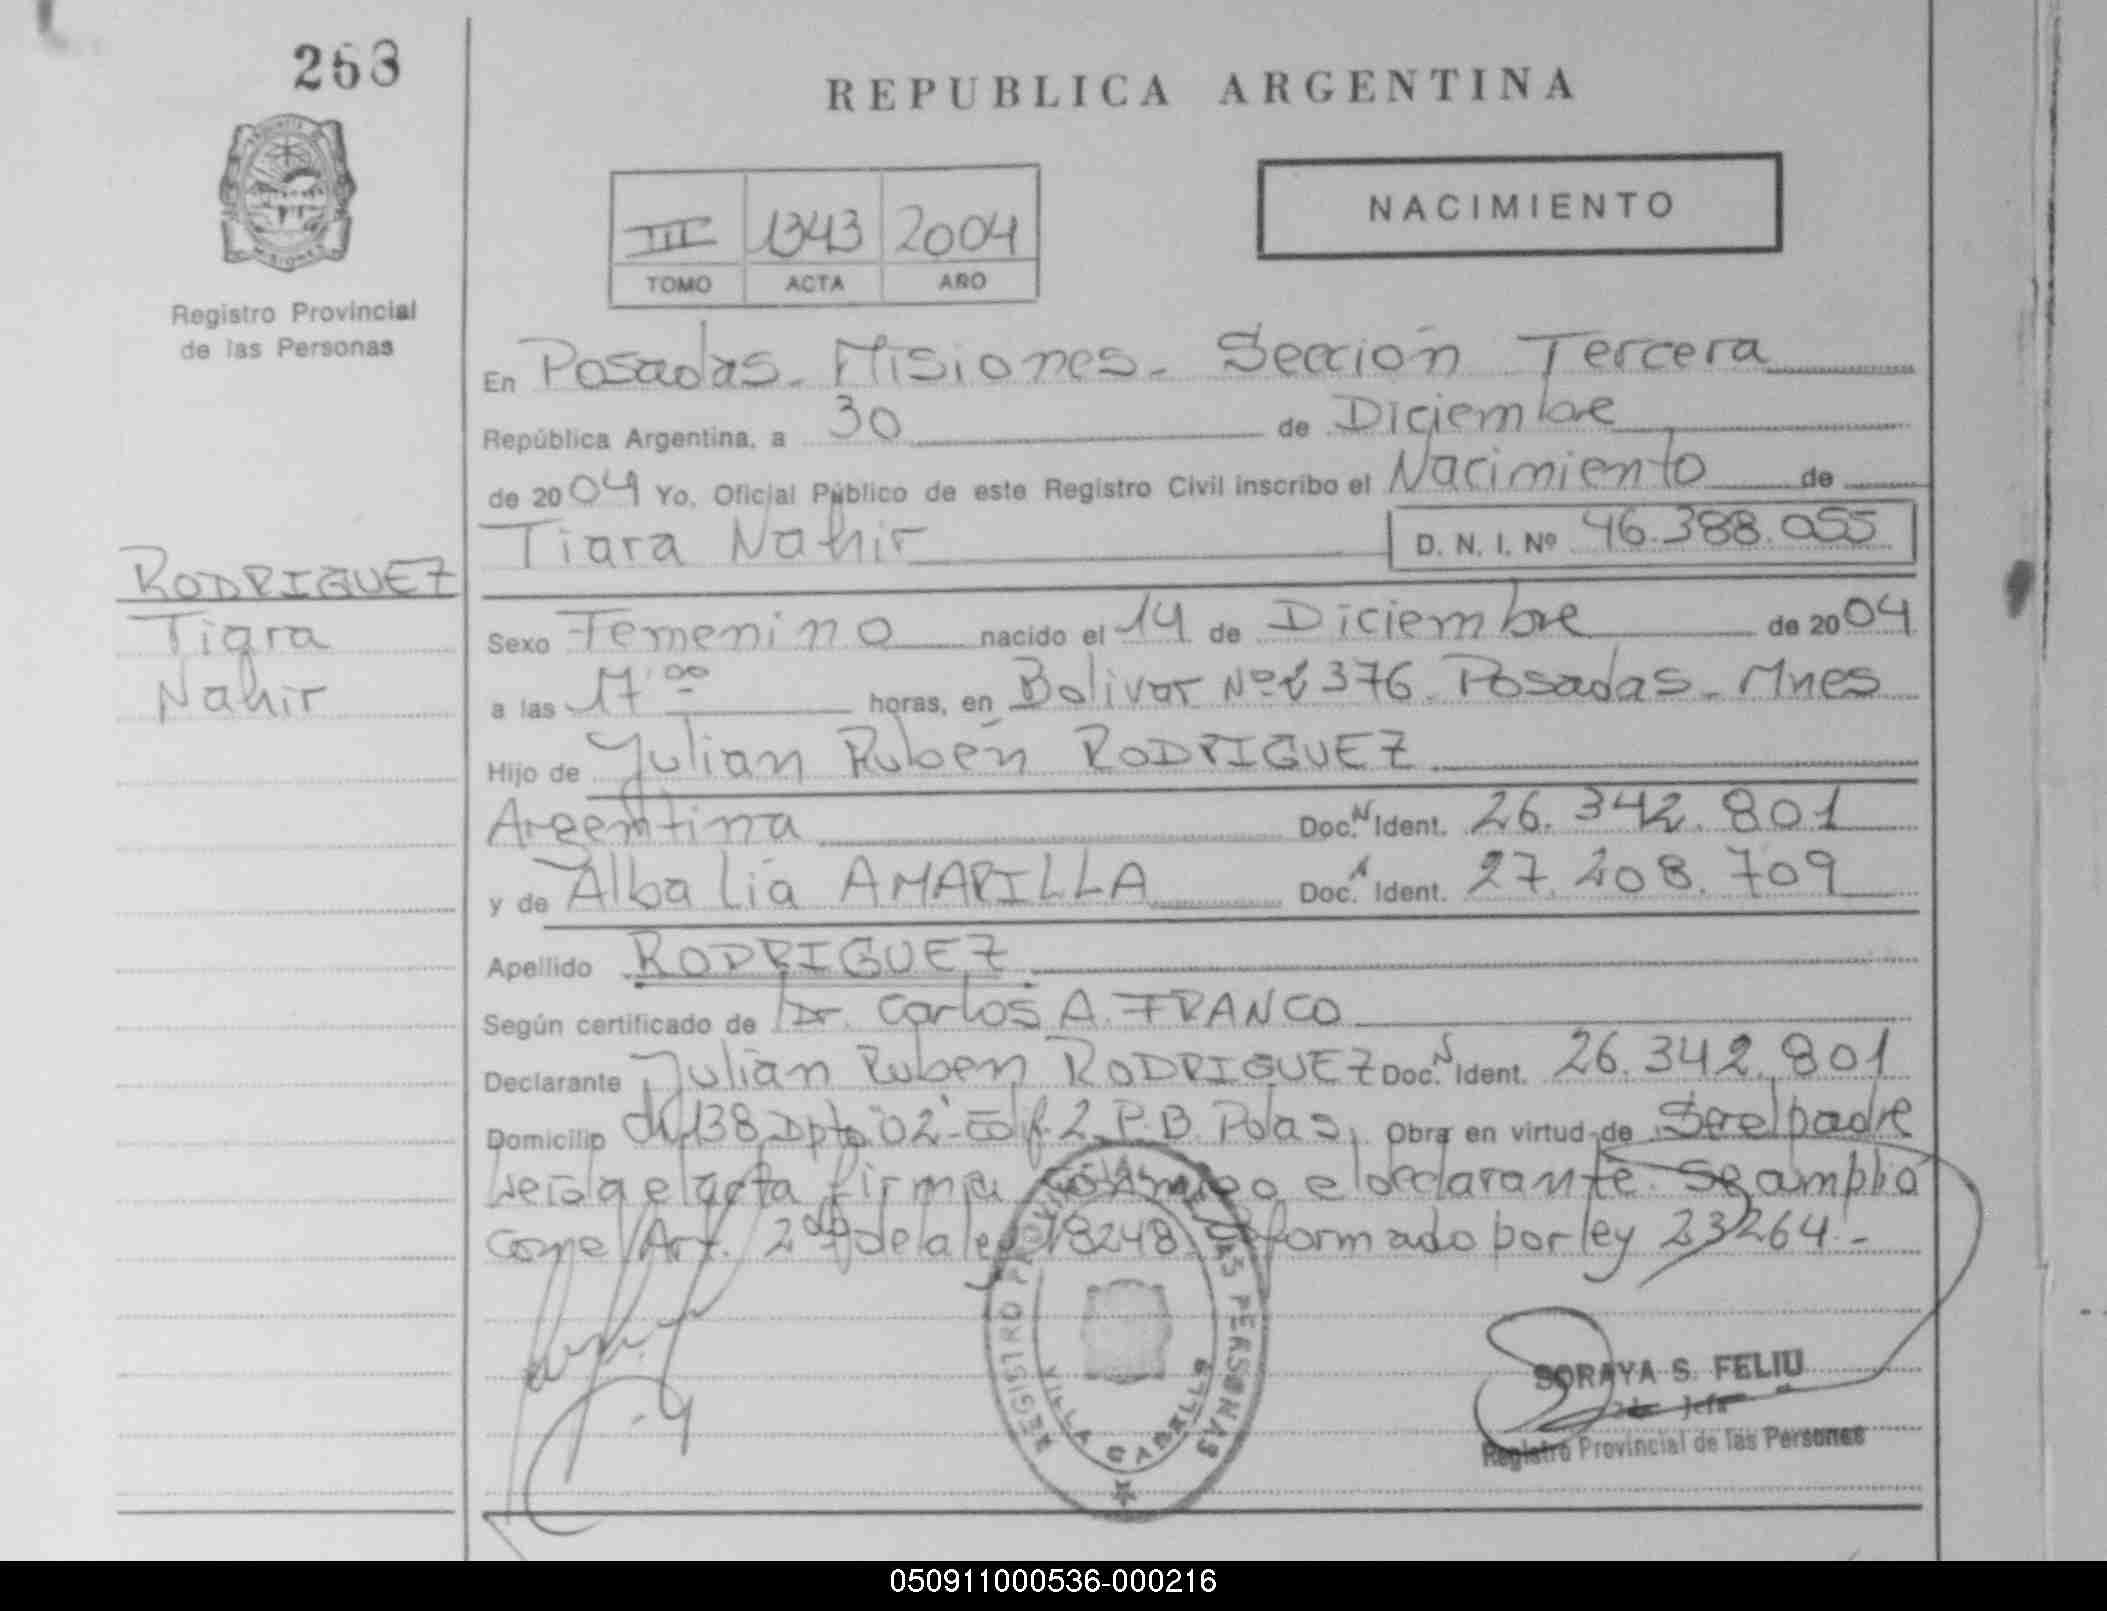 263
REPUBLICA ARGENTINA
NACIMIENTO
III 1343 2004
TOMO ACTA AÑO
Registro Provincial
de las Personas
En Posadas - Misiones - Sección Tercera
República Argentina, a 30 de Diciembre
de 2004 Yo, Oficial Público de este Registro Civil inscribo el Nacimiento de
Tiara Nahir D. N. I. Nº 46.388.055
RODRIGUEZ
Tiara
Nahir
Sexo Femenino nacido el 14 de Diciembre de 2004
a las 17:00 horas, en Bolivar Nº 376 Posadas - Mnes
Hijo de Julian Rubén RODRIGUEZ
Argentina Doc. N Ident. 26.342.801
y de Alba Lia AMARILLA Doc. Ident. 27.208.709
Apellido RODRIGUEZ
Según certificado de Dr. Carlos A. FRANCO
Declarante Julian Ruben RODRIGUEZ Doc. N Ident. 26.342.801
Domicilio ch 138 Dpto 02 - Edif. 2 P.B. Pdas, Obra en virtud de Ser el padre
Leida el acta firma conmigo el declarante. Se amplio
con el Art. 2do de la ley 18248 reformado por ley 23264.-
REGISTRO PROVINCIAL DE LAS PERSONAS
VILLA CABELLO
SORAYA S. FELIU
Jefa
Registro Provincial de las Personas
050911000536-000216